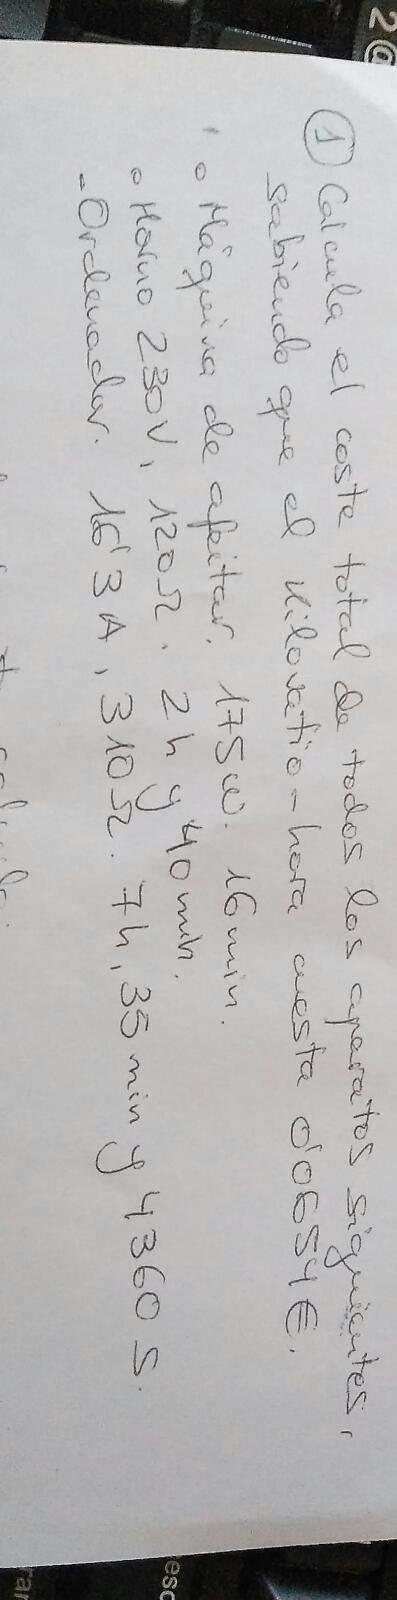 ① Calcula el coste total de todos los aparatos siguientes,
sabiendo que el kilovatio-hora cuesta 0'0654€.
o Máquina de afeitar. 175w. 16min.
o Horno 230V, 120Ω. 2h y 40min.
- Ordenador. 16'3A, 310Ω. 7h, 35min y 4360 s.
2@
esc